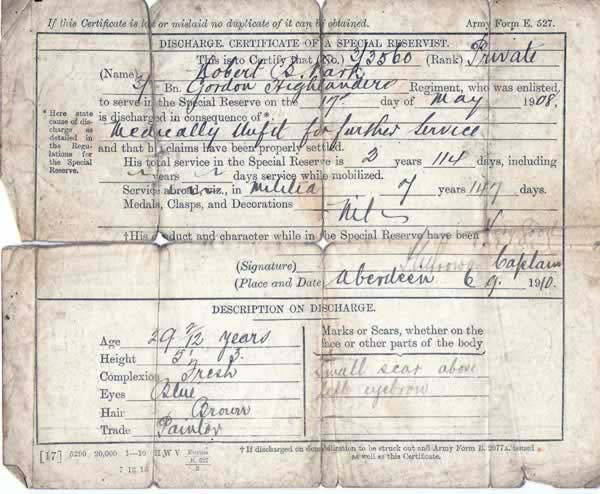 If this Certificate is lost or mislaid no duplicate of it can be obtained. Army Form E. 527.
DISCHARGE CERTIFICATE OF A SPECIAL RESERVIST.
This is to Certify that (No.) 3/3560 (Rank) Private
(Name) Robert Park
3/ Bn. Gordon Highlanders Regiment, who was enlisted,
to serve in the Special Reserve on the 17th day of May 1908,
is discharged in consequence of*
Medically Unfit for further Service
and that his claims have been properly settled.
His total service in the Special Reserve is 2 years 114 days, including
years days service while mobilized.
Service abroad, viz., in Militia 7 years days.
Medals, Clasps, and Decorations Nil
†His conduct and character while in the Special Reserve have been
Very Good
* Here state
cause of dis-
charge as
detailed in
the Regu-
lations for
the Special
Reserve.
(Signature) Captain
(Place and Date) Aberdeen 6 9. 1910.
DESCRIPTION ON DISCHARGE.
Age 29 7/12 years
Height 5' 3.
Complexion Fresh
Eyes Blue
Hair Brown
Trade Painter
Marks or Scars, whether on the
face or other parts of the body
Small scar above
left eyebrow
[17] 5290 20,000 1—10 H W V Forms
E. 527
† If discharged on demobilization to be struck out and Army Form E. 2077A. issued
as well as this Certificate.